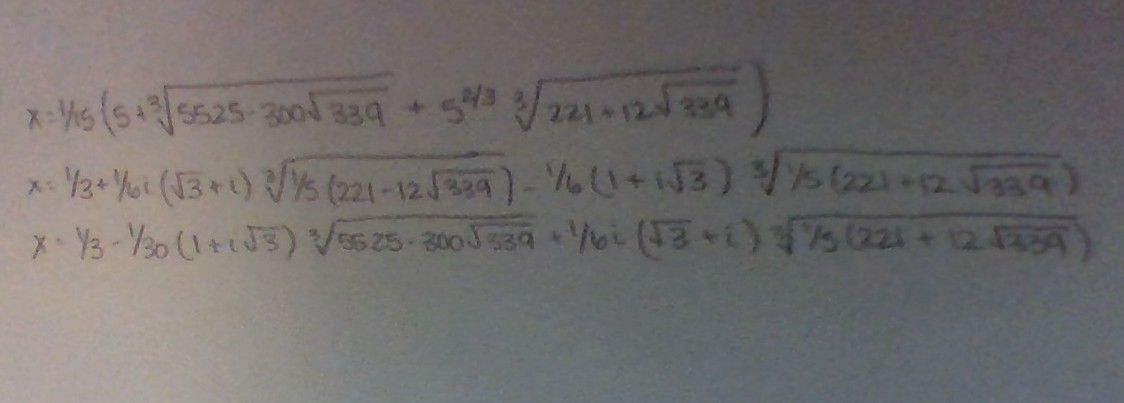 x=1/15(5+∛(5525-300√339) + 5^2/3 ∛(221+12√339))
x=1/3+1/6i(√3+i) ∛(1/5(221-12√339)) - 1/6(1+i√3) ∛(1/5(221+12√339))
x=1/3-1/30(1+i√3) ∛(5525-300√339) + 1/6i(√3+i) ∛(1/5(221+12√339))